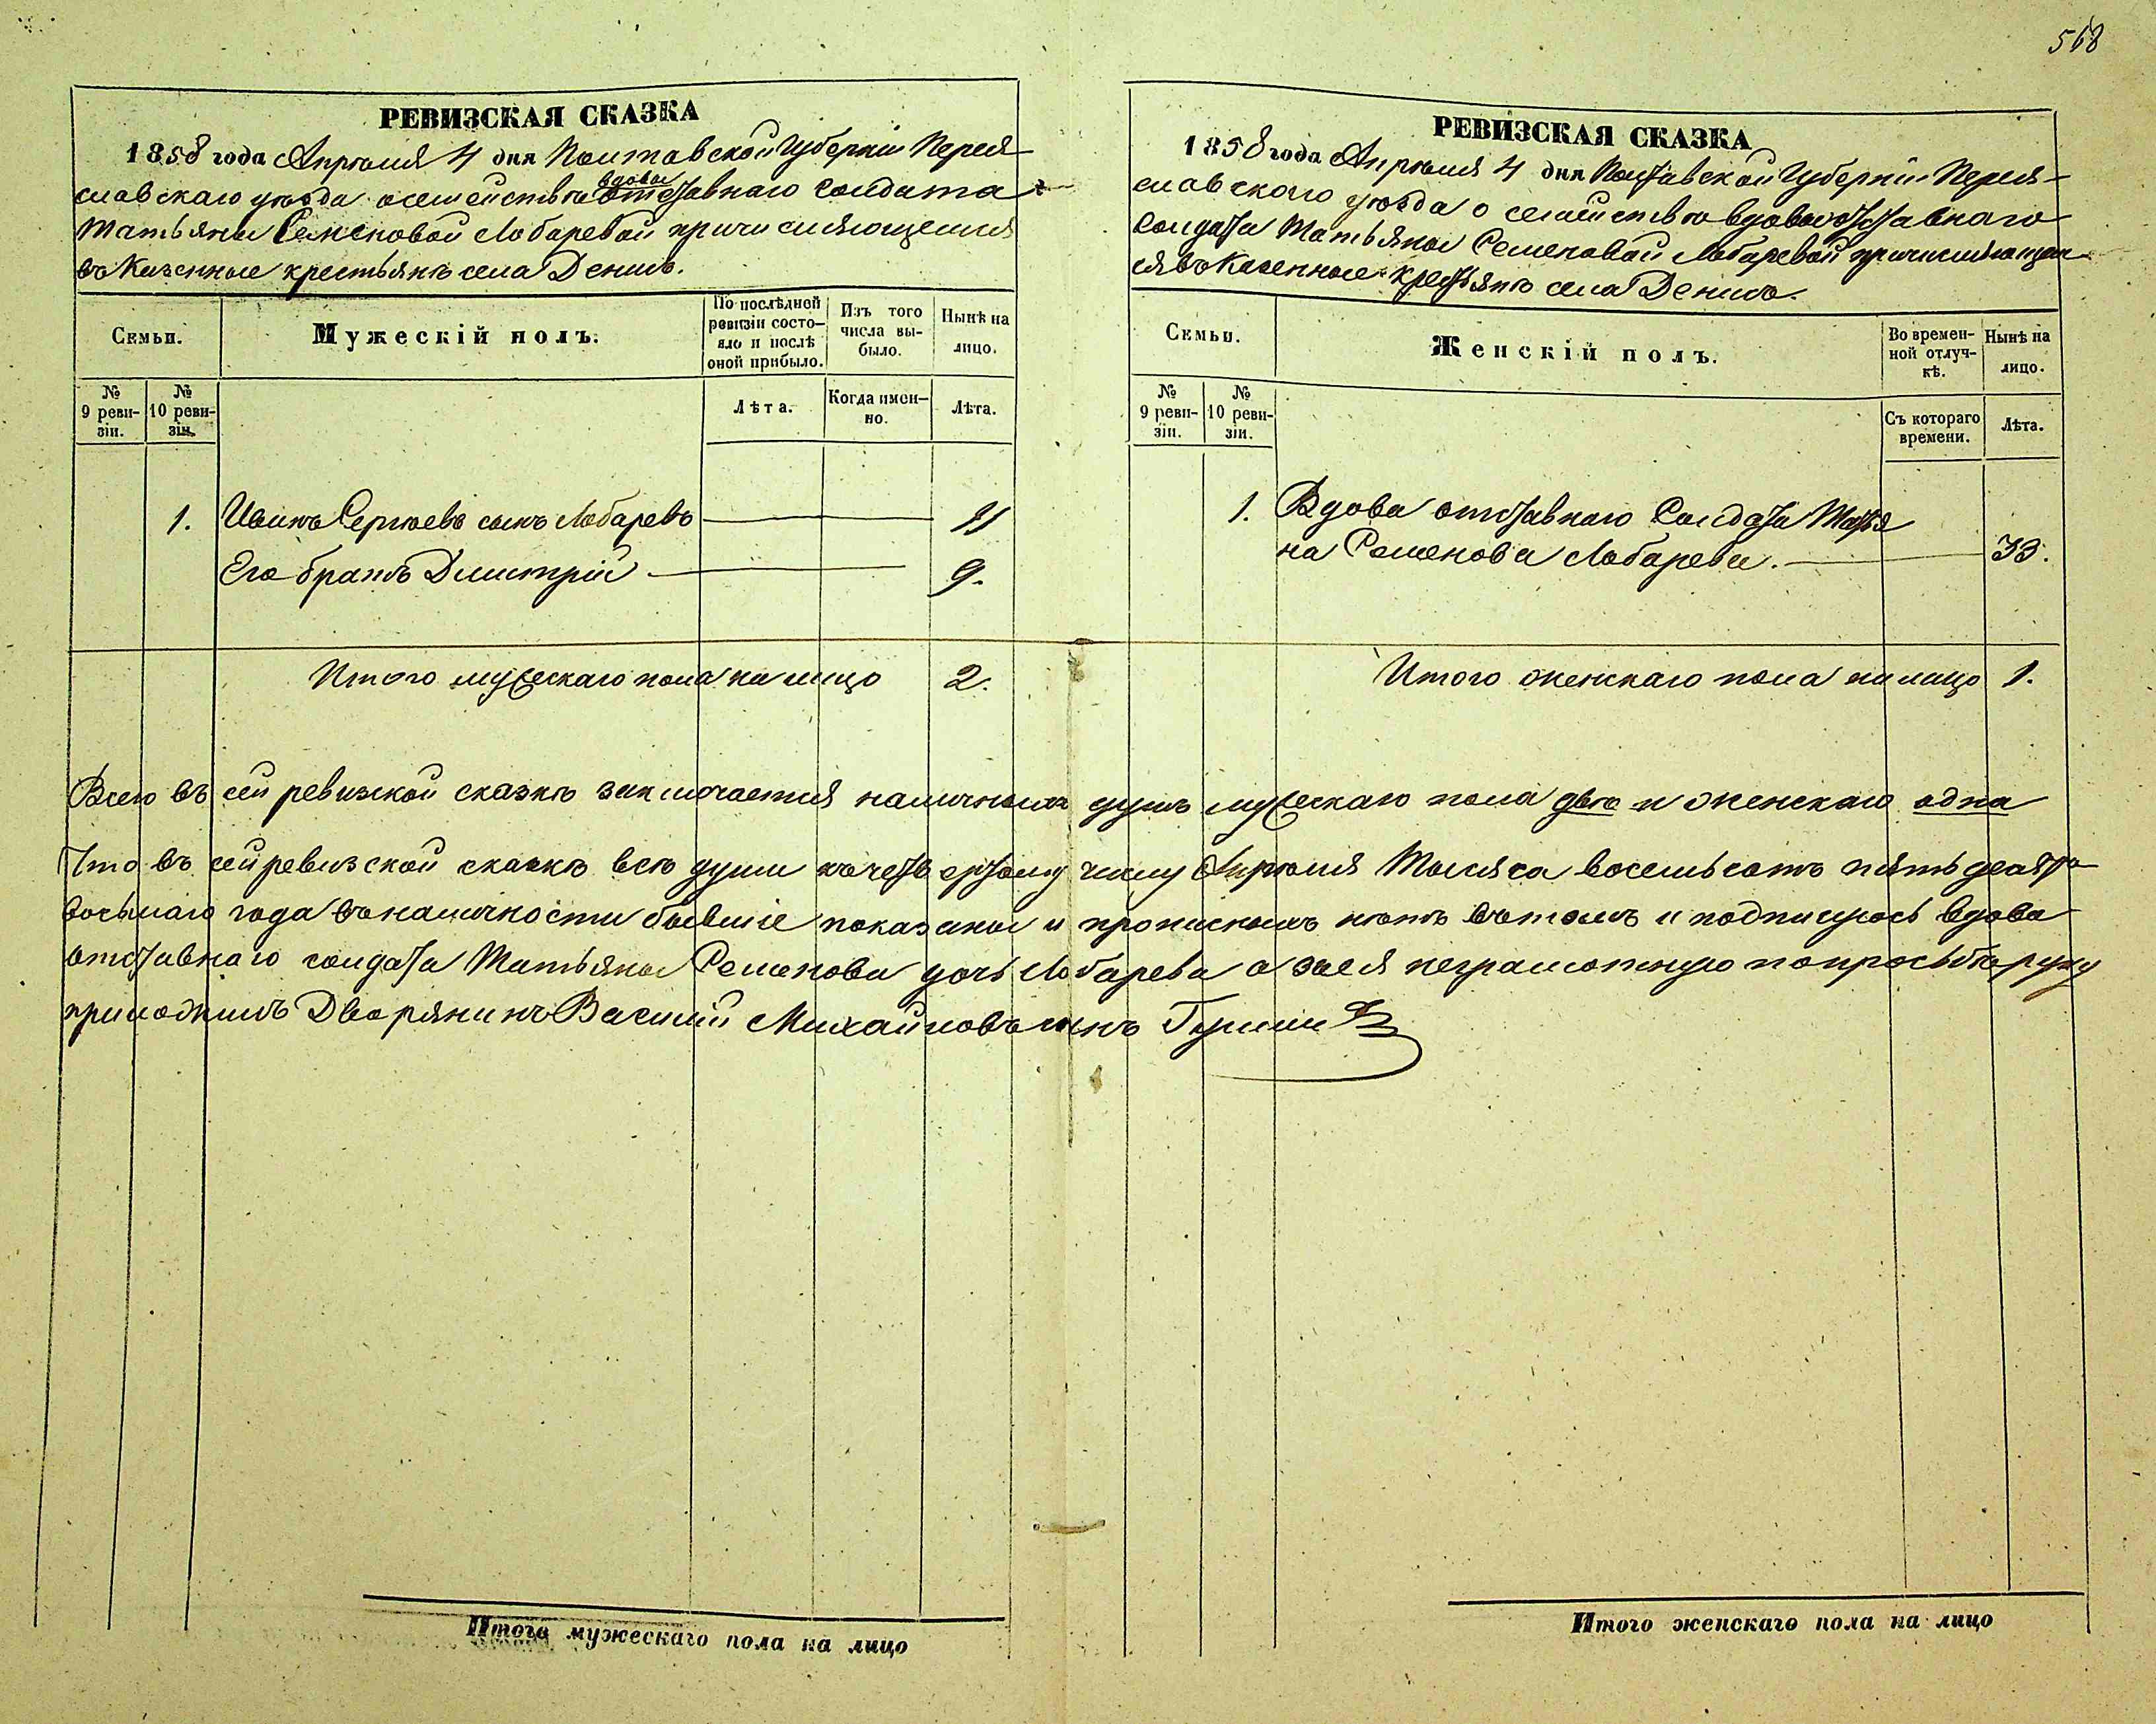 568
РЕВИЗСКАЯ СКАЗКА
1858 года Апрѣля 4 дня Полтавской Губерніи Перея-
славскаго уѣзда о семействѣ вдовы отставнаго солдата
Татьяны Семеновой Лобаревой причисляющемся
въ Казенные крестьянѣ села Денисъ.
Семьи.
Мужескій полъ.
По послѣдней ревизіи состо-
яло и послѣ оной прибыло.
Изъ того числа вы-
было.
Нынѣ на лицо.
№ 9 реви-
зіи.
№ 10 реви-
зіи.
Лѣта.
Когда имен-
но.
Лѣта.
1. Иванъ Сергѣевъ сынъ Лобаревъ 11
Его братъ Дмитрій 9.
Итого мужескаго пола на лицо 2.
РЕВИЗСКАЯ СКАЗКА
1858 года Апрѣля 4 дня Полтавской Губерніи Перея-
славского уѣзда о семействѣ вдовы отставнаго
Солдата Татьяны Семеновой Лобаревой причисляющем
ся въ Казенные крестьянѣ села Денисъ.
Семьи.
Женскій полъ.
Во времен-
ной отлуч-
кѣ.
Нынѣ на лицо.
№ 9 реви-
зіи.
№ 10 реви-
зіи.
Съ котораго времени.
Лѣта.
1. Вдова отставнаго Солдата Татья
на Семенова Лобарева. 33.
Итого женскаго пола на лицо 1.
Всего въ сей ревизкой сказкѣ заключается наличныхъ душъ мужескаго пола двѣ и женскаго одна
Что въ сей ревизской сказкѣ всѣ души къ четвертому числу Апрѣля Тысяча восемьсотъ пятьдесятъ
восьмаго года въ наличности бывшіе показаны и прописныхъ нѣтъ въ томъ и подписуюсь вдова
отставнаго солдата Татьяны Семенова дочь Лобарева а за нея неграмотную по просьбѣ руку
приложилъ Дворянинъ Василій Михайловъ сынъ
Итого мужескаго пола на лицо
Итого женскаго пола на лицо